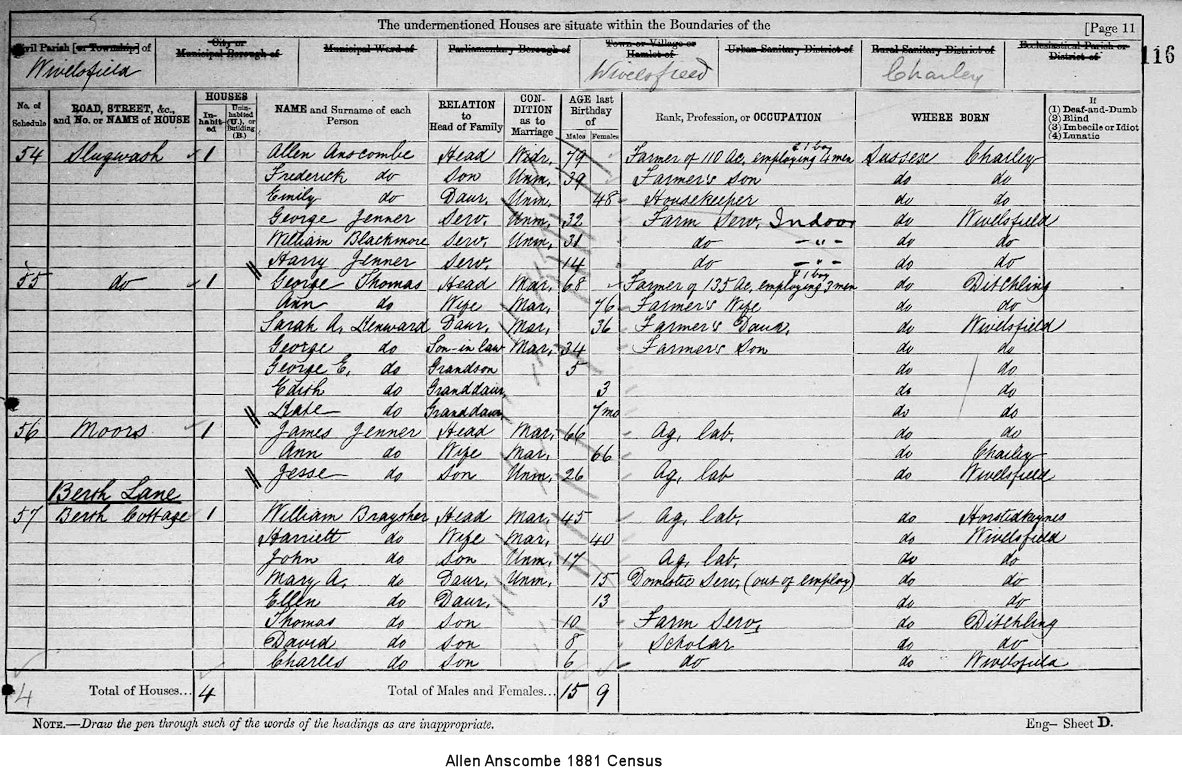 The undermentioned Houses are situate within the Boundaries of the [Page 11
Civil Parish [or Township] of City or Municipal Borough of Municipal Ward of Parliamentary Borough of Town or Village or Hamlet of Urban Sanitary District of Rural Sanitary District of Ecclesiastical Parish or District of 116
Wivelsfield Wivelsfield Chailey
No. of Schedule ROAD, STREET, &c., and No. or NAME of HOUSE HOUSES Inhabited Uninhabited (U.), or Building (B.) NAME and Surname of each Person RELATION to Head of Family CONDITION as to Marriage AGE last Birthday of Males Females Rank, Profession, or OCCUPATION WHERE BORN If (1) Deaf-and-Dumb (2) Blind (3) Imbecile or Idiot (4) Lunatic
54 Slugwash 1 Allen Anscombe Head Widr. 79 Farmer of 110 Ac. employing 4 men & 1 boy Sussex Chailey
Frederick do Son Unm. 39 Farmer's Son do do
Emily do Daur. Unm. 48 Housekeeper do do
George Jenner Serv. Unm. 32 Farm Serv. Indoor do Wivelsfield
William Blackmore Serv. Unm. 31 do - " - do do
Harry Jenner Serv. 14 do - " - do do
55 do 1 George Thomas Head Mar. 68 Farmer of 135 Ac. employing 3 men & 1 boy do Ditchling
Ann do Wife Mar. 76 Farmer's Wife do do
Sarah A. Kenward Daur. Mar. 36 Farmer's Daur. do Wivelsfield
George do Son-in law Mar. 34 Farmer's Son do do
George E. do Grandson 5 do do
Edith do Granddaur 3 do do
Kate do Granddaur 7 mo do do
56 Moors 1 James Jenner Head Mar. 66 Ag. lab. do do
Ann do Wife Mar. 66 do Chailey
Jesse do Son Unm. 26 Ag. lab do Wivelsfield
Berth Lane
57 Berth Cottage 1 William Braysher Head Mar. 45 Ag. lab. do Horstedkeynes
Harriett do Wife Mar. 40 do Wivelsfield
John do Son Unm. 17 Ag. lab. do do
Mary A. do Daur. Unm. 15 Domestic Serv. (out of employ) do do
Ellen do Daur. 13 do do
Thomas do Son 10 Farm Serv. do Ditchling
David do Son 8 Scholar do do
Charles do Son 6 do do Wivelsfield
4 Total of Houses... 4 Total of Males and Females... 15 9
NOTE.—Draw the pen through such of the words of the headings as are inappropriate. Eng— Sheet D.
Allen Anscombe 1881 Census